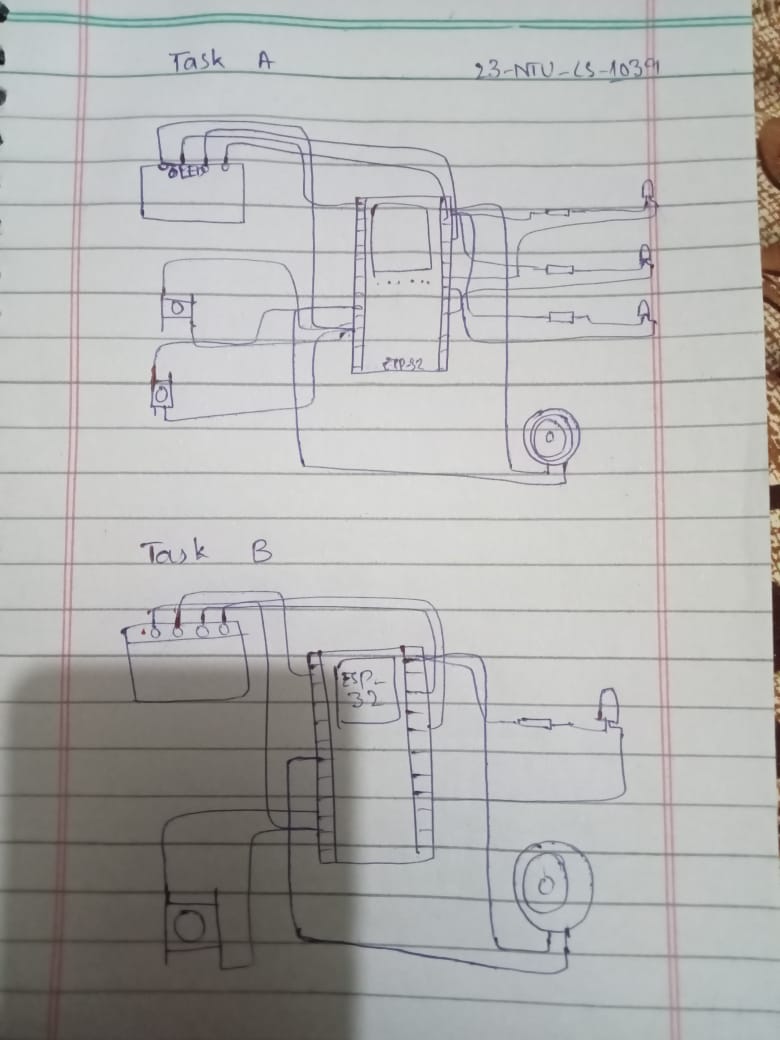 Task A
23-NTU-CS-1039
OLED
ESP-32
Task B
ESP-
32